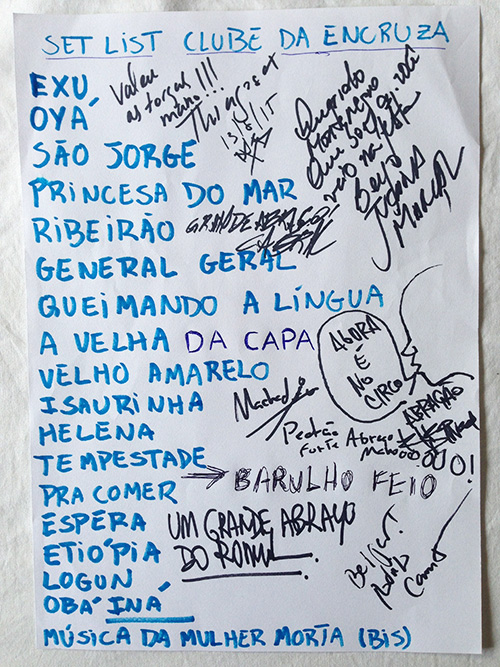 SET LIST CLUBE DA ENCRUZA
EXU
OYÁ
SÃO JORGE
PRINCESA DO MAR
RIBEIRÃO
GENERAL GERAL
QUEIMANDO A LÍNGUA
A VELHA DA CAPA
VELHO AMARELO
ISAURINHA
HELENA
TEMPESTADE
PRA COMER → BARULHO FEIO
ESPERA
ETIÓPIA
LOGUN
OBÁ INÁ
MÚSICA DA MULHER MORTA (BIS)
Valeu
as forças
mano!!!
13/8/15
Querido
que
veio na
Beijo
JUÇARA
MARÇAL
GRANDE ABRAÇO!
AGORA
É
NO
CIRCO
Machado
ABRAÇÃO
Pedrão
Forte Abraço
UM GRANDE ABRAÇO
DO ROMUL